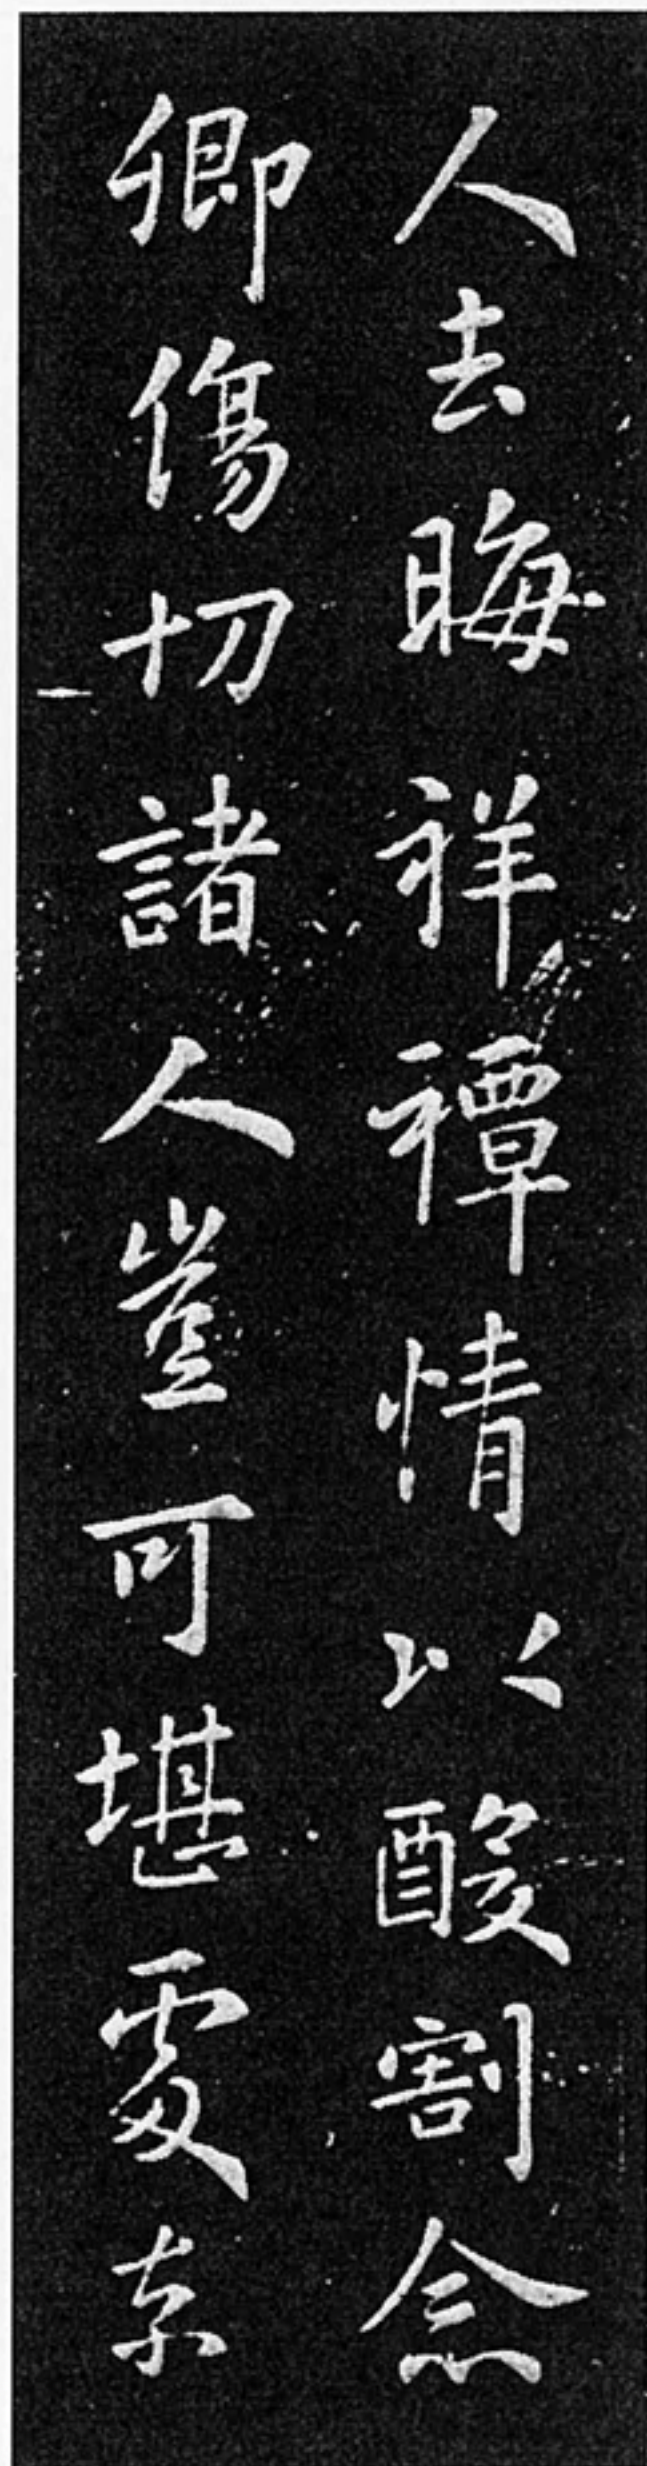 人去晦祥禫情以酸割念
卿傷切諸人豈可堪處奈